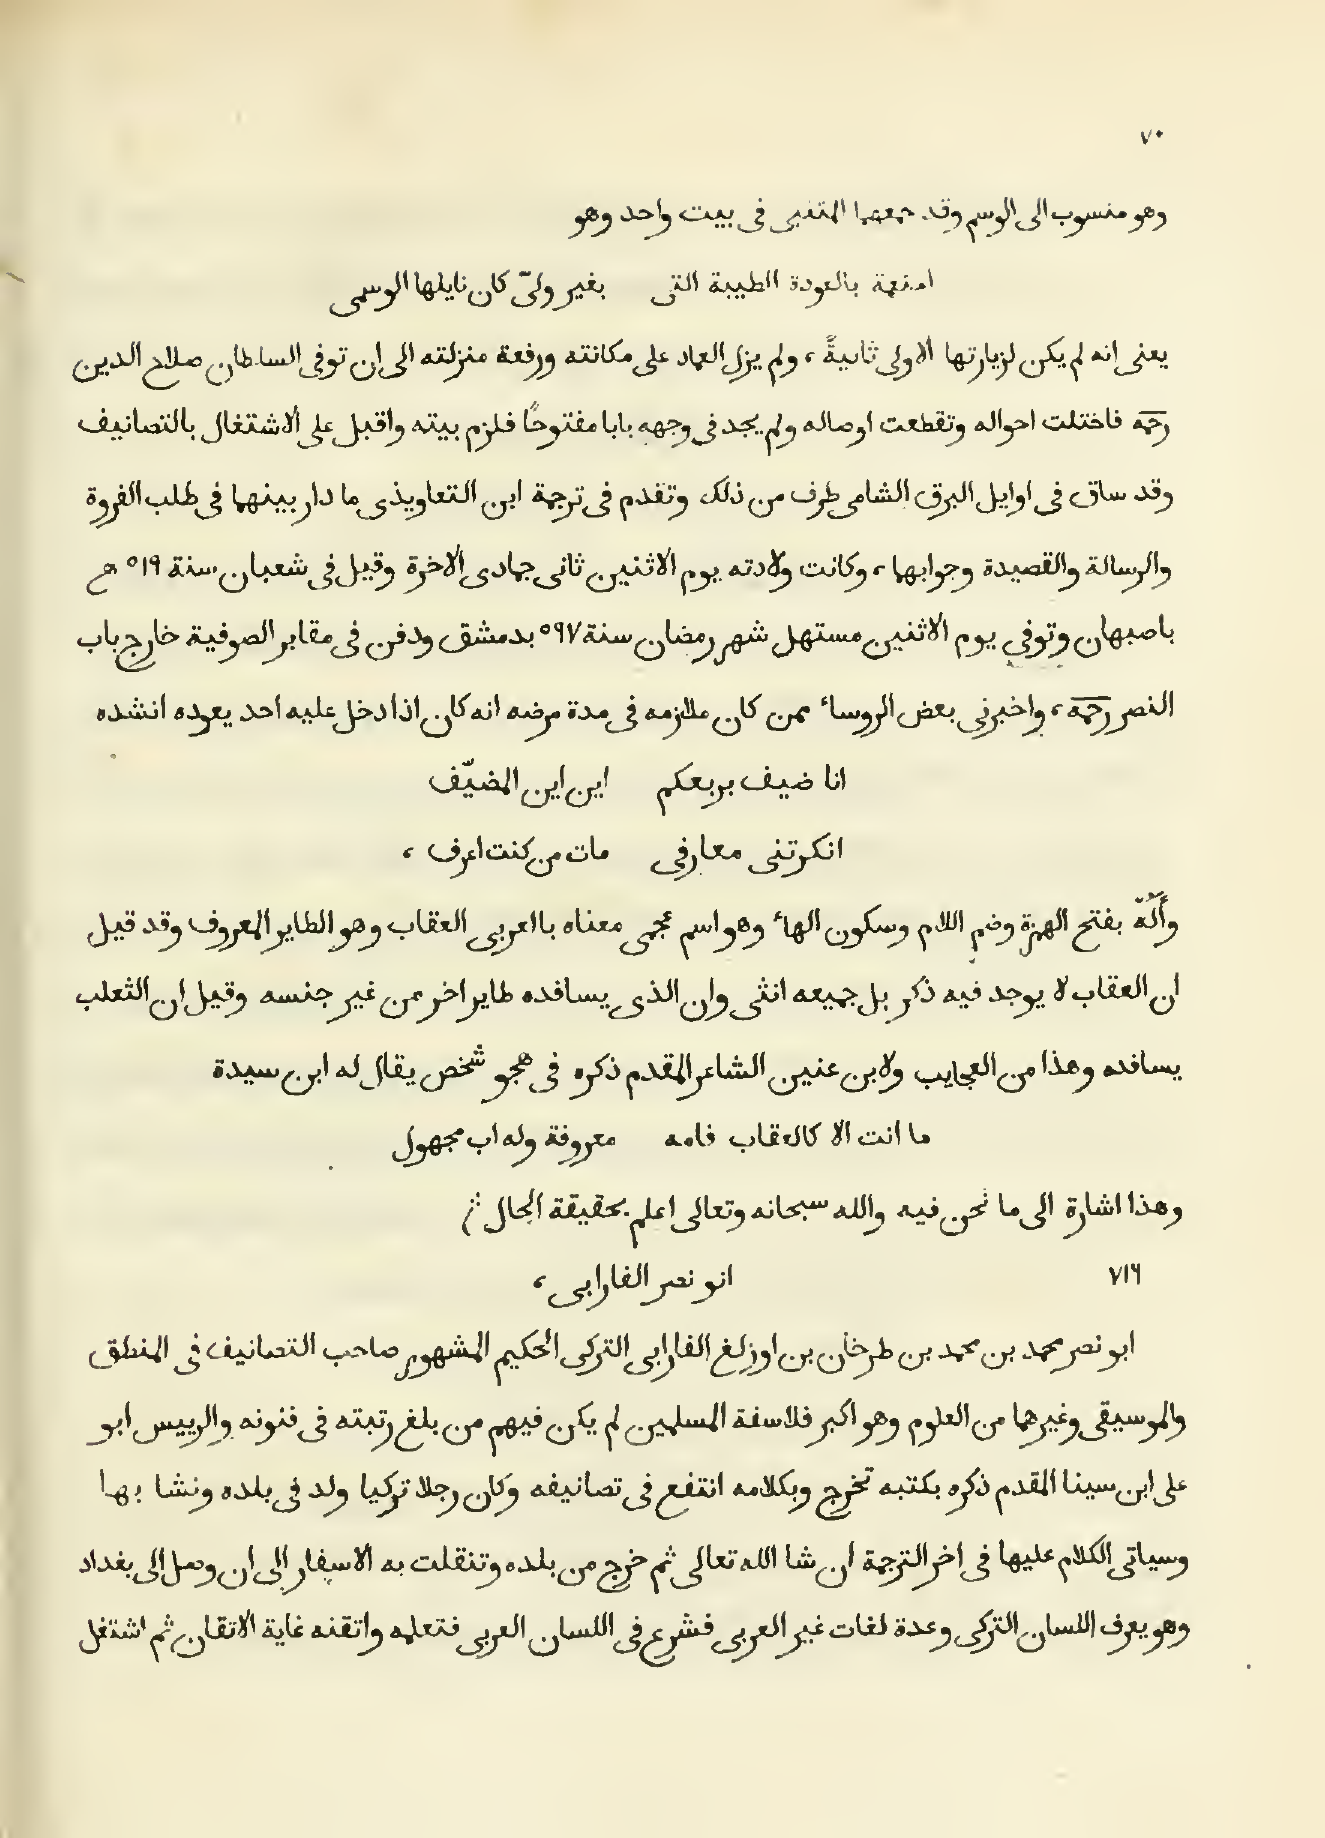 ٧٠
وهو منسوب الى الوسم وقد جمعهما المتنبى فى بيت واحد وهو
امنعمة بالعودة الطيبة التى بغير ولىّ كان نايلها الوسمى
يعنى انه لم يكن لزيارتها الاولى ثانيةً ، ولم يزل العماد على مكانته ورفعة منزلته الى ان توفى السلطان صلاح الدين
رحمه فاختلت احواله وتقطعت اوصاله ولم يجد فى وجهه بابا مفتوحًا فلزم بيته واقبل على الاشتغال بالتصانيف
وقد ساق فى اوايل البرق الشامى طرف من ذلك وتقدم فى ترجمة ابن التعاويذى ما دار بينهما فى طلب الفروة
والرسالة والقصيدة وجوابها ، وكانت ولادته يوم الاثنين ثانى جمادى الاخرة وقيل فى شعبان سنة ٥١٩ ھ
باصبهان وتوفى يوم الاثنين مستهل شهر رمضان سنة ٥٩٧ بدمشق ودفن فى مقابر الصوفية خارج باب
النصر رحمه ، واخبرنى بعض الروساء ممن كان ملازمه فى مدة مرضه انه كان اذا دخل عليه احد يعوده انشده
انا ضيف بربعكم اين اين المضيّف
انكرتنى معارفى مات من كنت اعرف ،
وأَلُهْ بفتح الهمزة وضم اللام وسكون الهاء وهو اسم عجمى معناه بالعربى العقاب وهو الطاير المعروف وقد قيل
ان العقاب لا يوجد فيه ذكر بل جميعه انثى وان الذى يسافده طاير اخر من غير جنسه وقيل ان الثعلب
يسافده وهذا من العجايب ولابن عنين الشاعر المقدم ذكره فى هجو شخص يقال له ابن سيدة
ما انت الا كالعقاب فامه معروفة وله اب مجهول
وهذا اشارة الى ما نحن فيه والله سبحانه وتعالى اعلم بحقيقة الحال
٧١٦ ابو نصر الفارابى ،
ابو نصر محمد بن محمد بن طرخان بن اوزلغ الفارابى التركى الحكيم المشهور صاحب التصانيف فى المنطق
والموسيقى وغيرها من العلوم وهو اكبر فلاسفة المسلمين لم يكن فيهم من بلغ رتبته فى فنونه والرييس ابو
على ابن سينا المقدم ذكره بكتبه تخرج وبكلامه انتفع فى تصانيفه وكان رجلا تركيا ولد فى بلده ونشا بها
وسياتى الكلام عليها فى اخر الترجمة ان شا الله تعالى ثم خرج من بلده وتنقلت به الاسفار الى ان وصل الى بغداد
وهو يعرف اللسان التركى وعدة لغات غير العربى فشرع فى اللسان العربى فتعلمه واتقنه غاية الاتقان ثم اشتغل